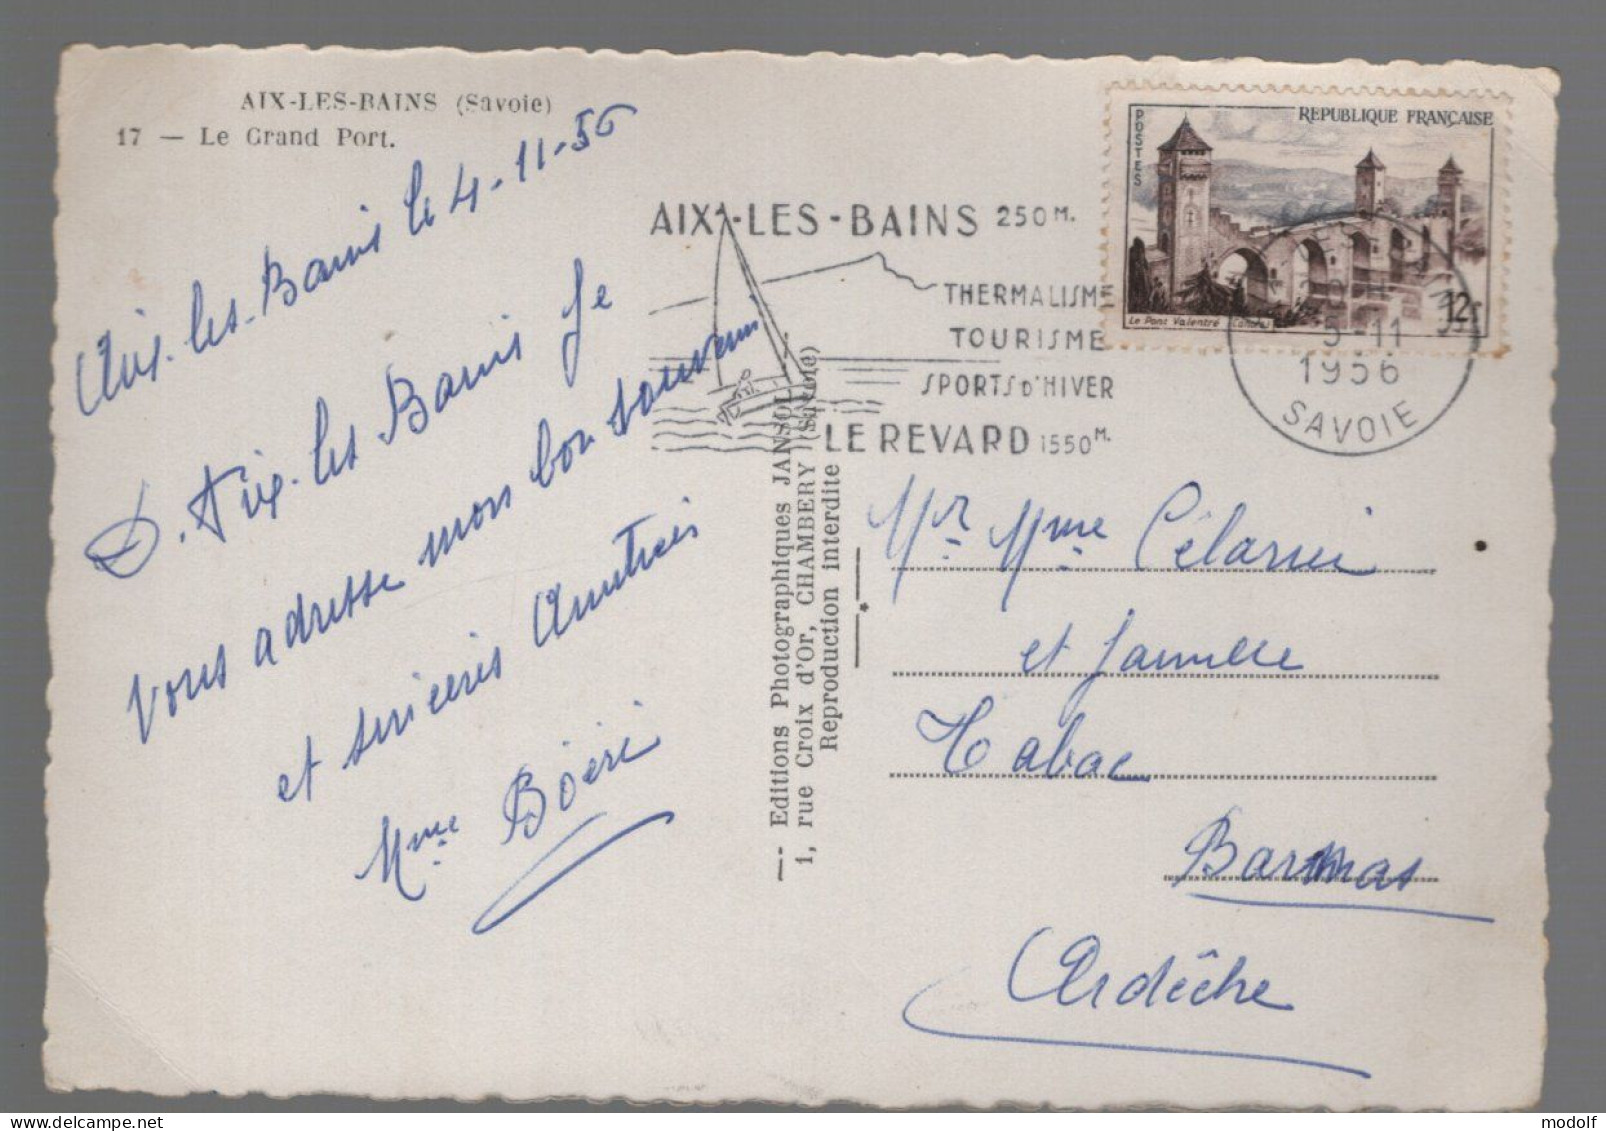 AIX-LES-BAINS (Savoie)
17 — Le Grand Port.
Aix-les-Bains le 4-11-56
D. Aix-les Bains Je
vous adresse mon bon souvenir
et sincères Amitiés
Mme Boëri
— Editions Photographiques JANSOL —
1, rue Croix d'Or, CHAMBERY (Savoie)
Reproduction interdite
AIX-LES-BAINS 250 M.
THERMALISME
TOURISME
SPORTS D'HIVER
LE REVARD 1550 M.
POSTES
REPUBLIQUE FRANÇAISE
Le Pont Valentré (Cahors)
12F
5-11
1956
SAVOIE
Mr Mme
et famille
Tabac
Ardèche
modolf